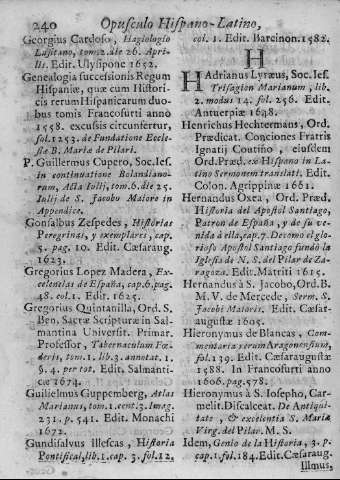 240 Opusculo Hispano-Latino,
Georgius Cardoso, Hagiologio
Lusitano, tom.2. die 26. Apri-
lis. Edit. Ulysipone 1652.
Genealogia successionis Regum
Hispaniæ, quæ cum Histori-
cis rerum Hispanicarum duo-
bus tomis Francofurti anno
1558. excusis circunfertur,
fol.1253. de Fundatione Eccle-
siæ B. Mariæ de Pilari.
P. Guillermus Cupero, Soc.Ies.
in continuatione Bolandiano-
rum, Acta Iulij, tom.6. die 25.
Iulij de S. Jacobo Maiore in
Appendice.
Gonsalbus Zespedes, Historias
Peregrinas, y exemplares, cap.
5. pag. 10. Edit. Cæsaraug.
1623.
Gregorius Lopez Madera, Ex-
celencias de España, cap.6.pag.
48. col.1. Edit. 1625.
Gregorius Quintanilla, Ord. S.
Ben. Sacræ Scripturæ in Sal-
mantina Universit. Primar.
Professor, Tabernaculum Fœ-
deris, tom.1. lib.3. annotat. 1.
§. 4. per tot. Edit. Salmanti-
cæ 1674.
Guilielmus Guppemberg, Atlas
Marianus, tom.1.cent.3. Imag.
231. p. 541. Edit. Monachi
1672.
Gundisalvus Illescas, Historia
Pontifical, lib.1.cap. 3. fol.12.
col. 1. Edit. Barcinon. 1582.
H
HAdrianus Lyræus, Soc. Ies.
Trisagion Marianum, lib.
2. modus 14. fol. 256. Edit.
Antuerpiæ 1648.
Henrichus Hechtermans, Ord.
Prædicat. Conciones Fratris
Ignatij Coutiño, eiusdem
Ord.Præd. ex Hispano in La-
tino Sermonem translati. Edit.
Colon. Agrippinæ 1661.
Hernandus Oxea, Ord. Præd.
Historia del Apostol Santiago,
Patron de España, y de su ve-
nida à ella, cap.7. De como el glo-
rioso Apostol Santiago fundò la
Iglesia de N. S. del Pilar de Za-
ragoza. Edit.Matriti 1615.
Hernandus à S. Jacobo, Ord.B.
M. V. de Mercede, Serm. S.
Jacobi Maioris. Edit. Cæsar-
augustæ 1605.
Hieronymus de Blancas, Com-
mentaria rerum Aragonensium,
fol.139. Edit. Cæsaraugustæ
1588. In Francofurti anno
1606. pag.578.
Hieronymus à S. Iosepho, Car-
melit.Discalceat. De Antiqui-
tate, & excelentia S. Mariæ
Virg. del Pilar. M. S.
Idem, Genio de la Historia, 3. p.
cap.1. fol.184.Edit.Cæsaraug.
Illmus.